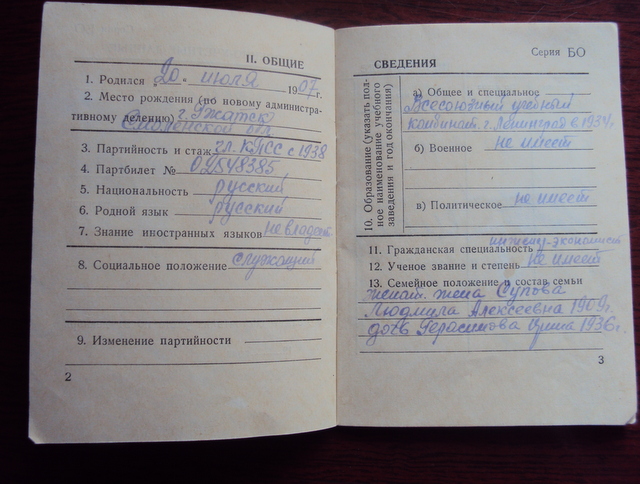 II. ОБЩИЕ
1. Родился „20“ июля 1907 г.
2. Место рождения (по новому административному делению) г. Гжатск
Смоленской обл.
3. Партийность и стаж чл. КПСС с 1938
4. Партбилет № 02548385
5. Национальность русский
6. Родной язык русский
7. Знание иностранных языков не владеет
8. Социальное положение служащий
9. Изменение партийности
2
Серия БО
СВЕДЕНИЯ
10. Образование (указать полное наименование учебного заведения и год окончания)
а) Общее и специальное
Всесоюзный учебный
комбинат г. Ленинград в 1934 г.
б) Военное не имеет
в) Политическое не имеет
11. Гражданская специальность инженер-экономист
12. Ученое звание и степень не имеет
13. Семейное положение и состав семьи
женат. жена
Людмила Алексеевна 1909 г.
дочь Герасимова Ирина 1936 г.
3